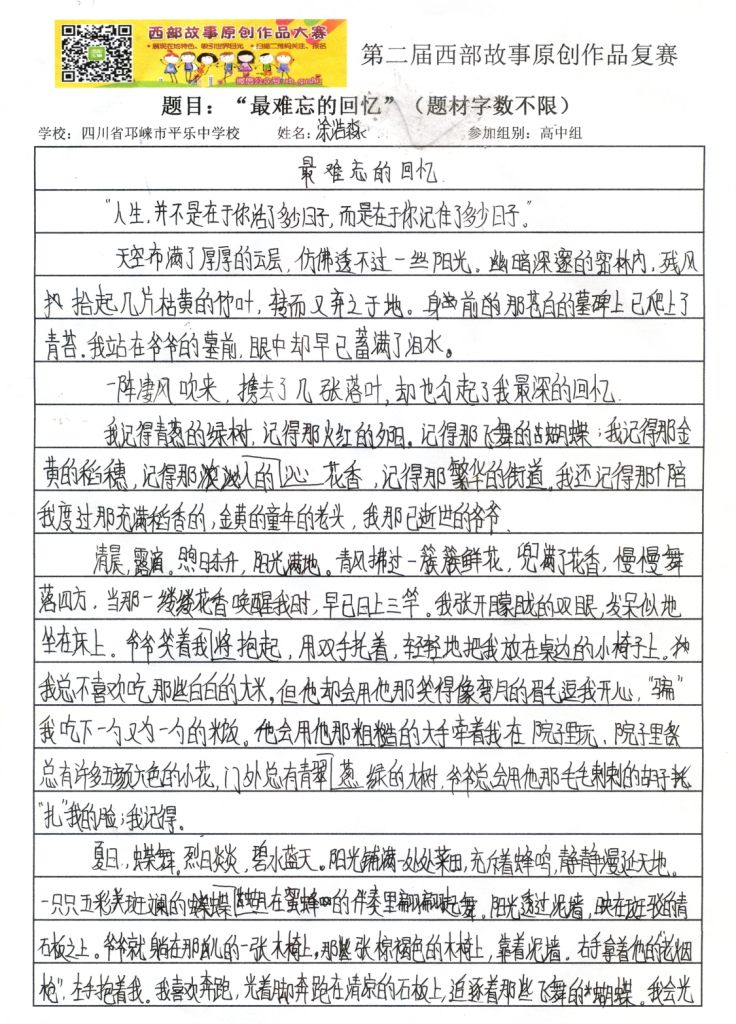 西部故事原创作品大赛
第二届西部故事原创作品复赛
题目：“最难忘的回忆”（题材字数不限）
学校：四川省邛崃市平乐中学校 姓名：涂浩森 参加组别：高中组
最难忘的回忆
“人生，并不是在于你活了多少日子，而是在于你记住了多少日子。”
天空布满了厚厚的云层，仿佛透不过一丝阳光。幽暗深邃的密林内，残风
拾起几片枯黄的竹叶，转而又弃之于地。身前的那苍白的墓碑上已爬上了
青苔。我站在爷爷的墓前，眼中却早已蓄满了泪水。
一阵凄风吹来，携去了几张落叶，却也勾起了我最深的回忆
我记得青葱的绿树，记得那火红的夕阳。记得那飞舞的蝴蝶；我记得那金
黄的稻穗，记得那人的沁心花香，记得那繁华的街道。我还记得那个陪
我度过那充满稻香的，金黄的童年的老头，我那已逝世的爷爷。
清晨，露滴。煦日东升，阳光满地。青风拂过一簇簇鲜花，兜满了花香，慢慢舞
落四方，当那一缕缕花香唤醒我时，早已日上三竿。我张开朦胧的双眼，发呆似地
坐在床上。爷爷笑着将我抱起，用双手托着，轻轻地把我放在桌边的小椅子上。
我总不喜欢吃那些白白的大米，但他却会用他那笑得像弯月的眉毛逗我开心，“骗”
我吃下一勺又为一勺的米饭。他会用他那粗糙的大手牵着我在院子里玩，院子里
总有许多五颜六色的小花，门外总有青翠葱绿的大树，爷爷总会用他那毛毛刺刺的胡子
“扎”我的脸；我记得。
夏日，蝶舞。烈日炎炎，碧水蓝天。阳光铺满一处处菜田，充斥着蜂鸣，静静漫延天地。
一只只五彩斑斓的蝴蝶在蜜蜂的伴奏里翩翩起舞。阳光透过泥墙，映在斑驳的青
石板之上。爷爷就躺在那的一张木椅上，那张棕褐色的木椅上，靠着泥墙。右手拿着他的“老烟
枪”，左手抱着我。我喜欢奔跑，光着脚奔跑在清凉的石板上，追逐着那些飞舞的蝴蝶。我会光